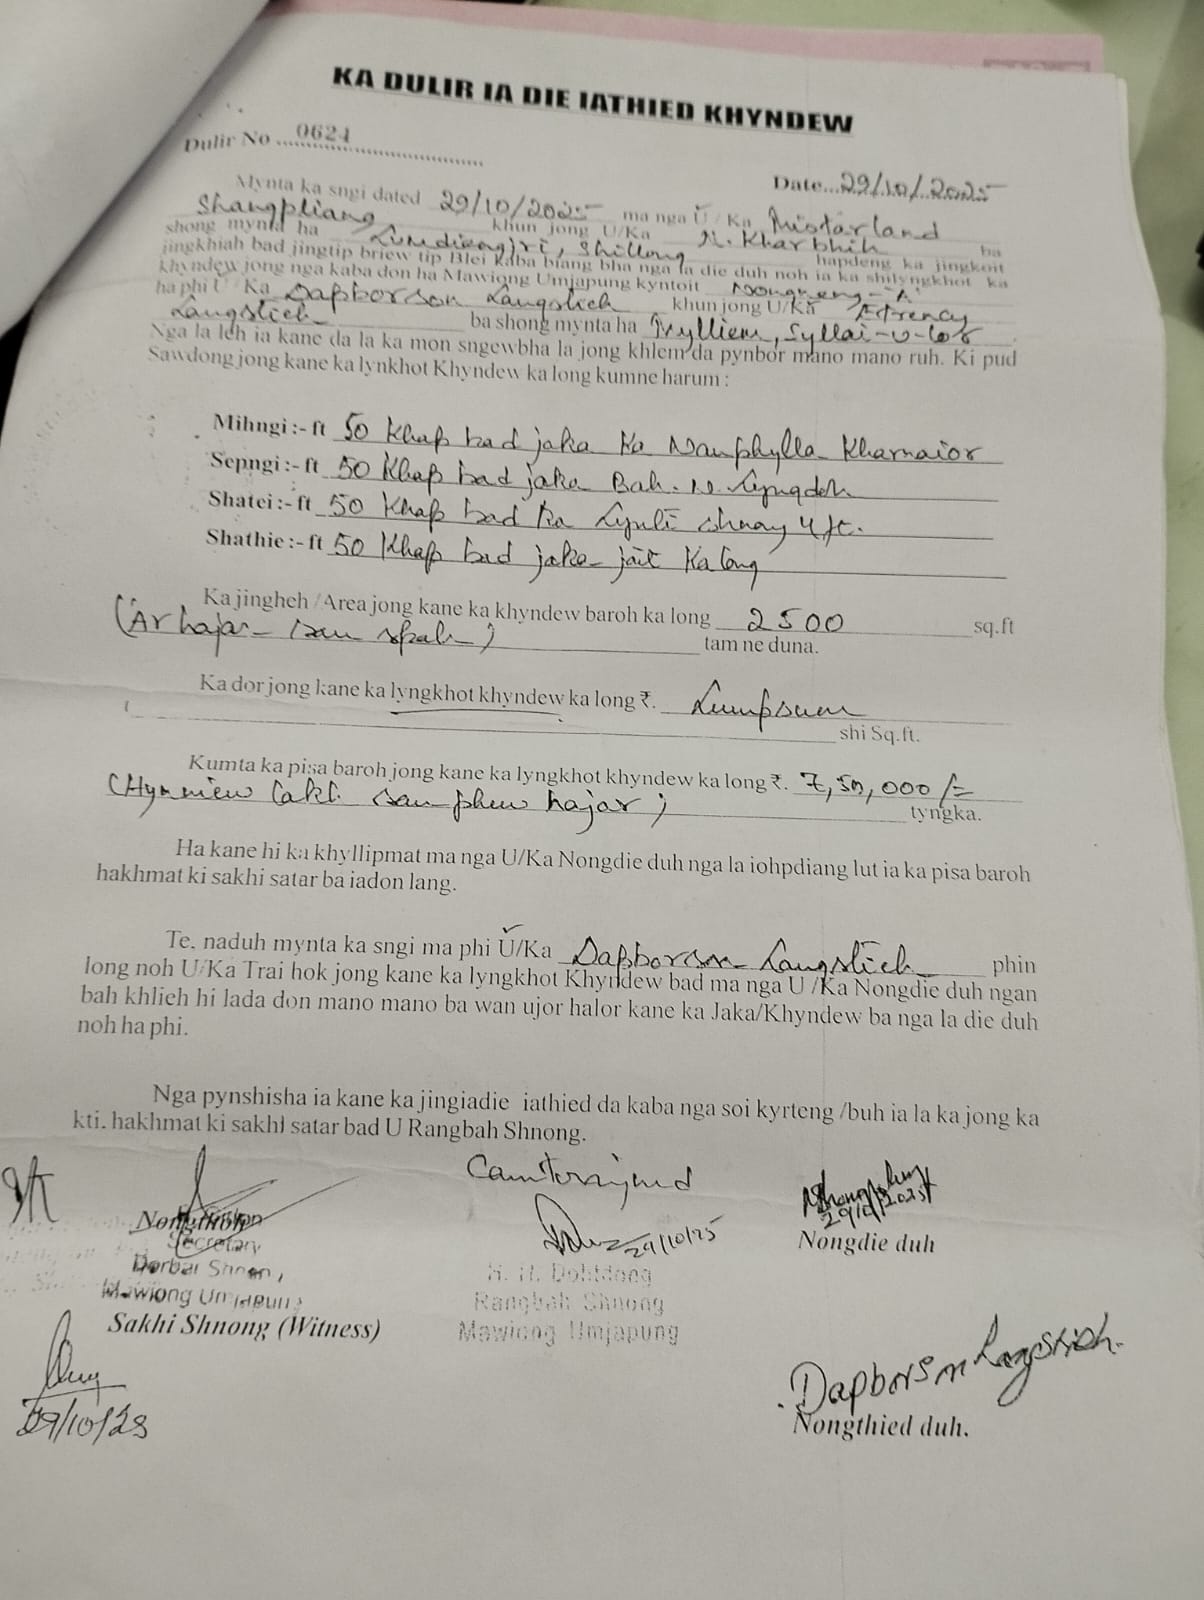 KA DULIR IA DIE IATHIED KHYNDEW
Dulir No ....0624
Date...29/10/2025
Mynta ka sngi dated 29/10/2025 ma nga U / Ka Mistarland
Shangpliang khun jong U/Ka N. Kharbhih ba
shong mynta ha Lumdiengjri, Shillong hapdeng ka jingkoit
jingkhiah bad jingtip briew tip Blei kaba biang bha nga la die duh noh ia ka shilyngkhot ka
khyndew jong nga kaba don ha Mawiong Umjapung kyntoit Nongneng-A
ha phi U / Ka Dapborson Langstieh khun jong U/Ka
Langstieh ba shong mynta ha Mylliem, Syllai-u-lor
Nga la leh ia kane da la ka mon sngewbha la jong khlem da pynbor mano mano ruh. Ki pud
Sawdong jong kane ka lynkhot Khyndew ka long kumne harum :
Mihngi :- ft 50 Khap bad jaka Ka Wanphylla Kharnaior
Sepngi :- ft 50 Khap bad jaka Bah. N. Lyngdoh
Shatei :- ft 50 Khap bad Ka Lynti shnong 4 ft.
Shathie :- ft 50 Khap bad jaka jait Kalong
Ka jingheh / Area jong kane ka khyndew baroh ka long 2500 sq.ft
(Ar hajar san spah) tam ne duna.
Ka dor jong kane ka lyngkhot khyndew ka long ₹. Lumpsum
( shi Sq.ft.
Kumta ka pisa baroh jong kane ka lyngkhot khyndew ka long ₹. 7,50,000/=
(Hynniew lakh san phew hajar) tyngka.
Ha kane hi ka khyllipmat ma nga U/Ka Nongdie duh nga la iohpdiang lut ia ka pisa baroh
hakhmat ki sakhi satar ba iadon lang.
Te. naduh mynta ka sngi ma phi U/Ka Dapborson Langstieh phin
long noh U/Ka Trai hok jong kane ka lyngkhot Khyndew bad ma nga U /Ka Nongdie duh ngan
bah khlieh hi lada don mano mano ba wan ujor halor kane ka Jaka/Khyndew ba nga la die duh
noh ha phi.
Nga pynshisha ia kane ka jingiadie iathied da kaba nga soi kyrteng /buh ia la ka jong ka
kti. hakhmat ki sakhi satar bad U Rangbah Shnong.
Countersigned
29/10/25
29/10/2025
Nongdie duh
Secretary
Dorbar Shnong,
Mawiong Umjapung
Sakhi Shnong (Witness)
H. H. Dohtdong
Rangbah Shnong
Mawiong Umjapung
29/10/25
Dapborson Langstieh.
Nongthied duh.